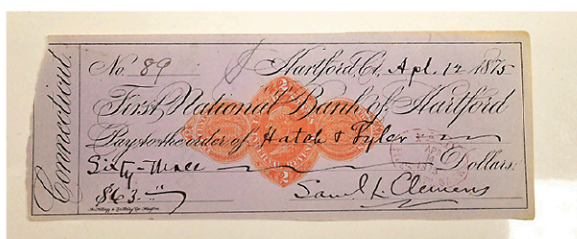 Connecticut.
No. 89 Hartford, Ct. Apl. 12 1875
First National Bank of Hartford
Pay to the order of Hatch & Tyler
Sixty-three Dollars
$63.
Saml. L. Clemens